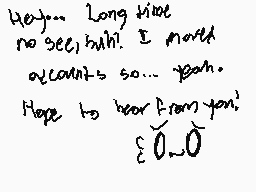 Hey... Long time
no see, huh? I moved
accounts so... yeah.
Hope to hear from you!